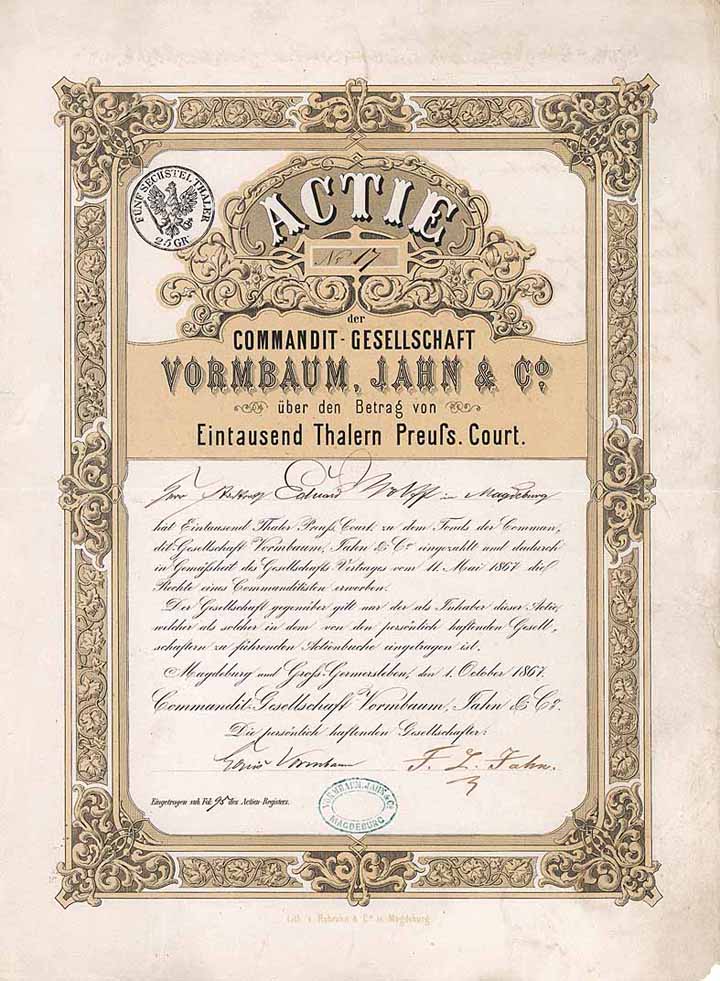 ACTIE
FÜNF SECHSTEL THALER
25 GR.
No. 17
der
COMMANDIT-GESELLSCHAFT
VORMBAUM, JAHN & Co.
über den Betrag von
Eintausend Thalern Preuſs. Court.
Herr Eduard in Magdeburg
hat Eintausend Thaler Preuß. Court. zu dem Fonds der Comman,
dit-Gesellschaft Vormbaum, Jahn & Co. eingezahlt und dadurch
in Gemäßheit des Gesellschafts Vertrages vom 11. Mai 1867 die
Rechte eines Commanditisten erworben.
Der Gesellschaft gegenüber gilt nur der als Inhaber dieser Actie,
welcher als solcher in dem von den persönlich haftenden Gesell,
schaftern zu führenden Actienbuche eingetragen ist.
Magdeburg und Groß-Germersleben, den 1. October 1867.
Commandit-Gesellschaft Vormbaum, Jahn & Co.
Die persönlich haftenden Gesellschafter:
Vormbaum F. L. Jahn.
Eingetragen sub Fol. 95 des Actien-Registers.
VORMBAUM, JAHN & Co.
MAGDEBURG
Lith. v. & Co. in Magdeburg.